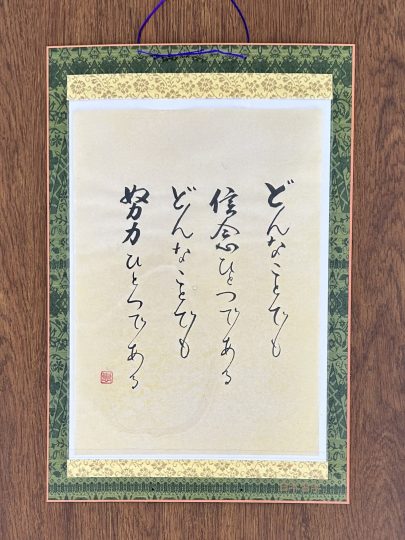 どんなことでも
信念ひとつである
どんなことでも
努力ひとつである